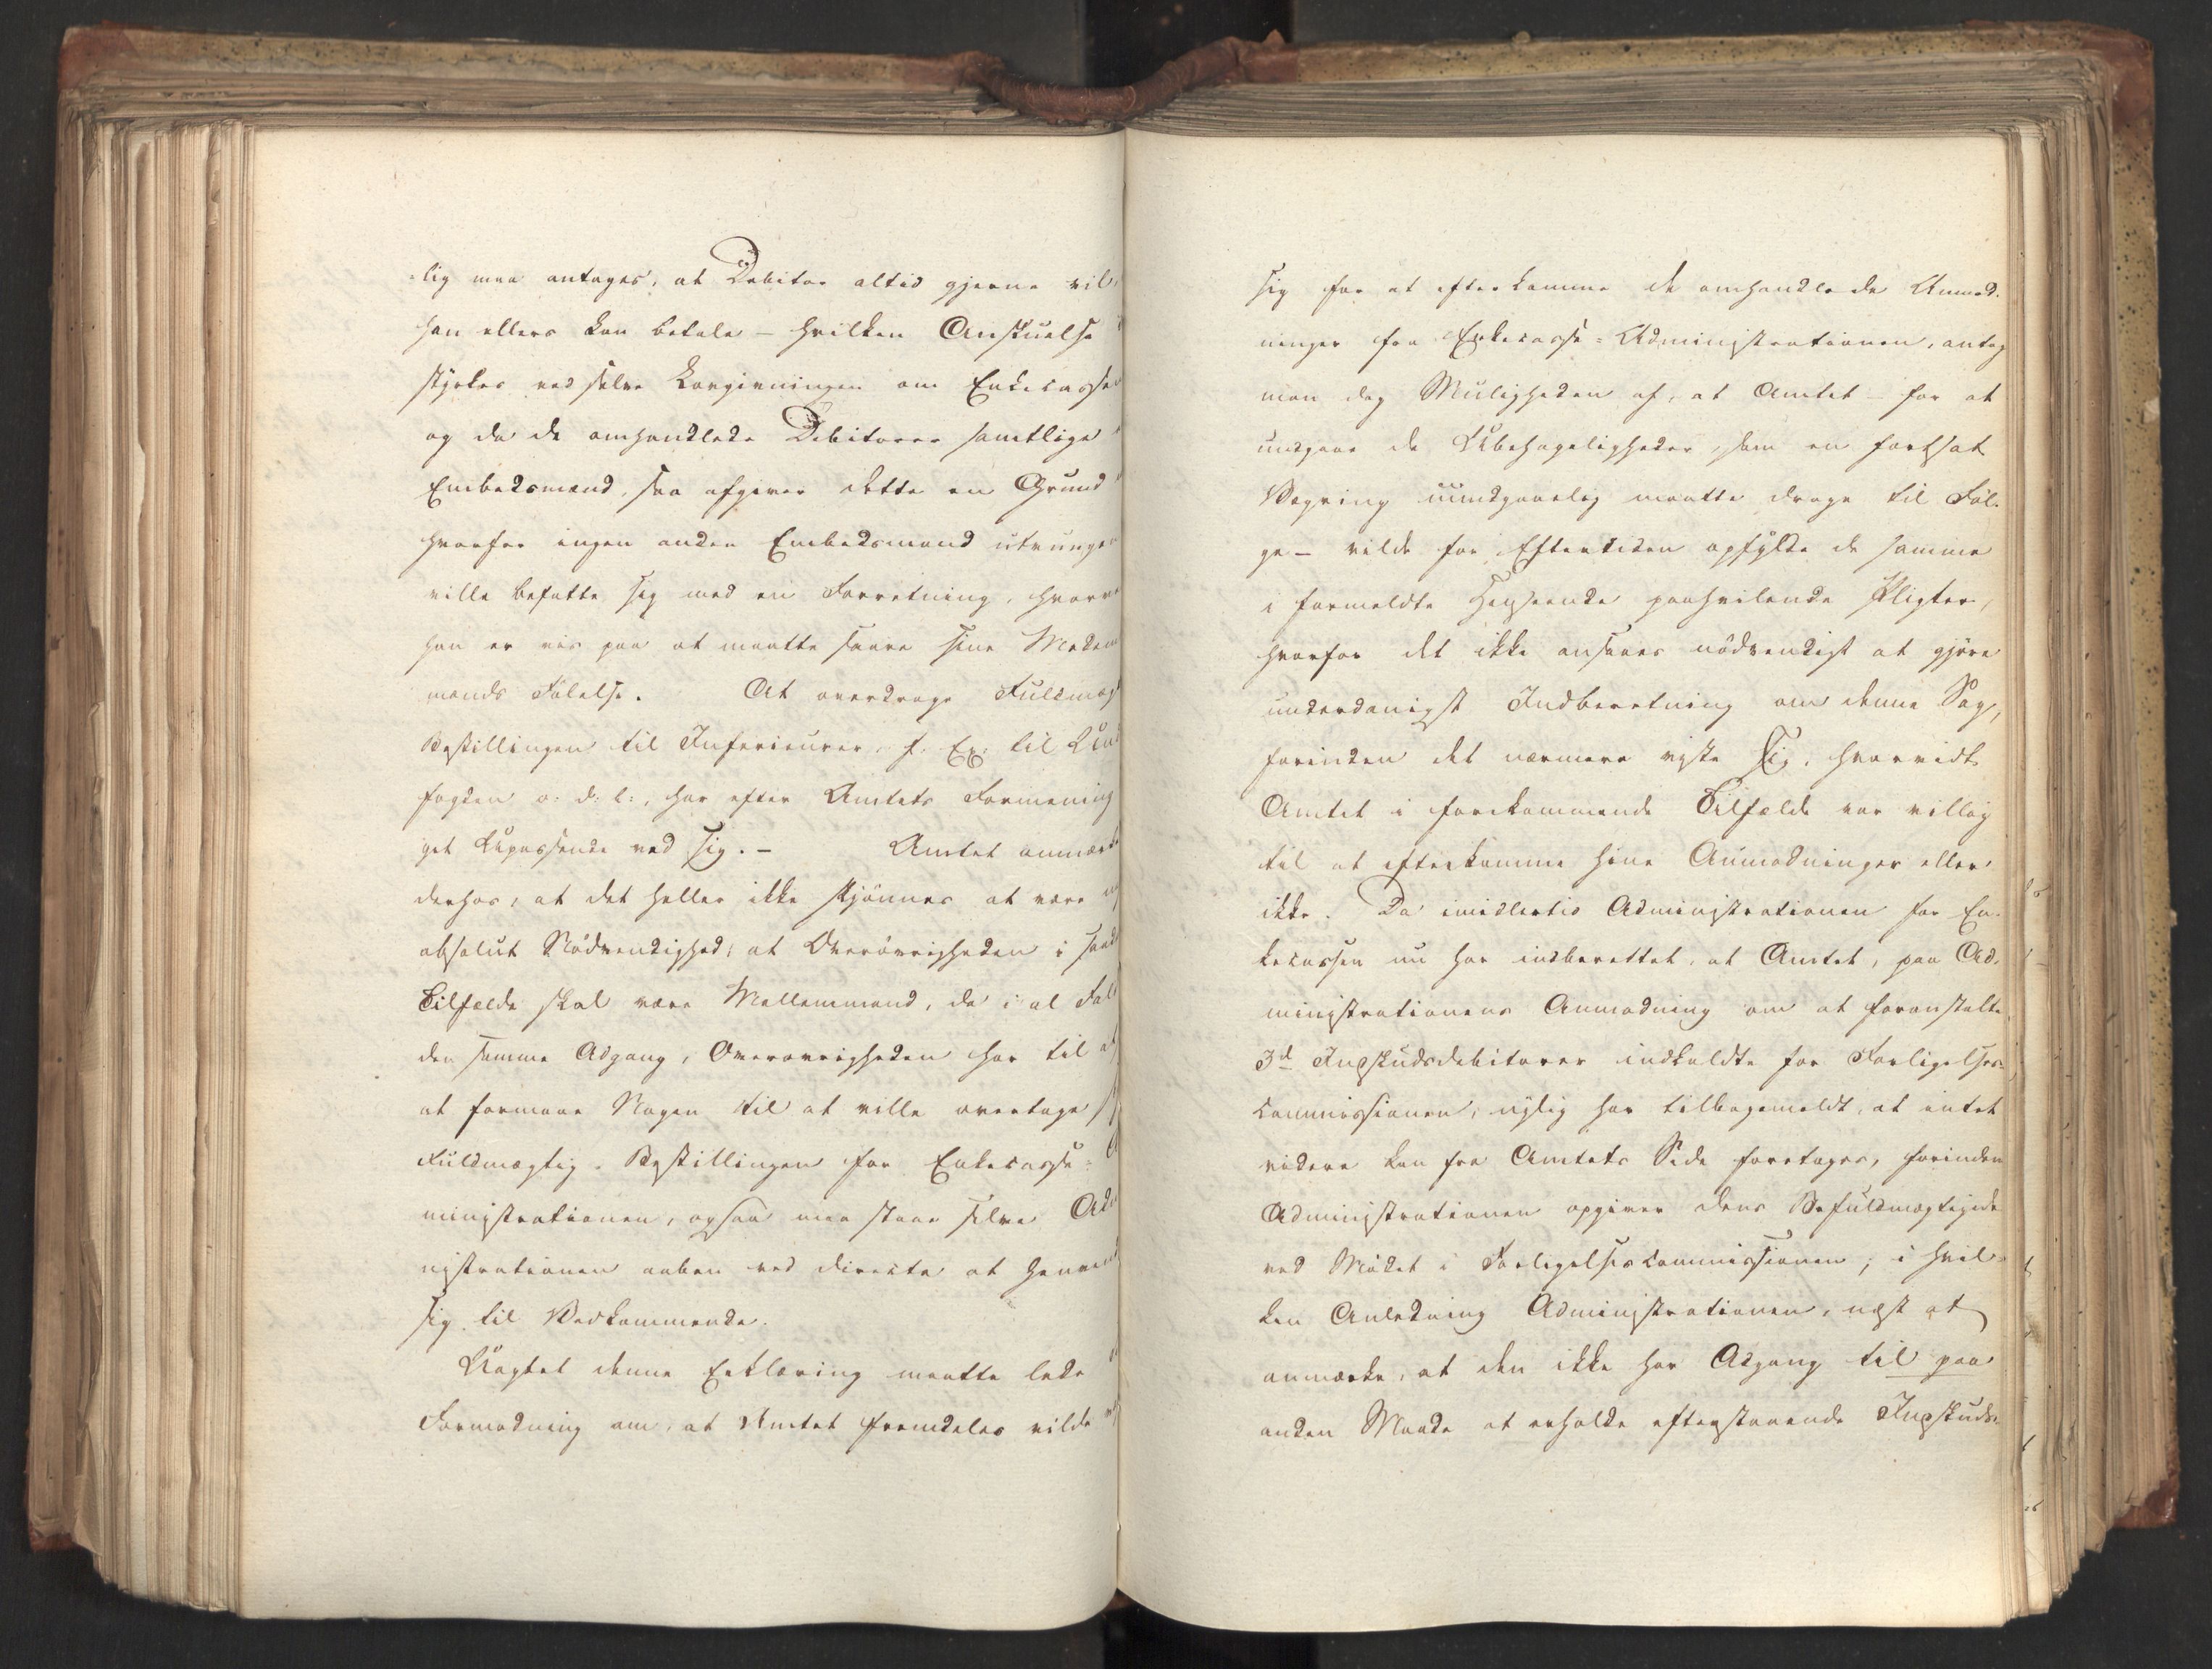 -lig maa antages, at Debitor altid gjerne vil,
han ellers kan betale - hvilken Anskuelse
styrkes ved selve Lovgivningen om Enkecassen
og da de omhandlede Debitorer samtlige
Embedsmænd, saa afgiver dette en Grund
hvorfor ingen anden Embedsmand utvungen
ville befatte sig med en Forretning, hvorve
han er vis paa at maatte saare sine Meden
mænds Følelse. At overdrage Fuldmægt
Bestillingen til Inferieurer, f. Ex. til Lens
fogden o: d: l:, har efter Amtets Formening
get Upassende ved sig. - Amtet anmærke
derhos, at det heller ikke skjønnes at være
absolut Nødvendighed, at Overøvrigheden i saad
Tilfælde skal være Mellemmand, da i al Fald
den samme Adgang, Overøvrigheden har til
at formaae Nogen til at ville overtage
Fuldmægtig-Bestillingen for Enkecasse-
ministrationen, ogsaa maa staae selve Adm
nistrationen aaben ved directe at henvend
sig til Vedkommende.
Uagtet denne Erklæring maatte lede
Formodning om, at Amtet fremdeles vilde
sig for at efterkomme de omhandlede Anmod-
ninger fra Enkecasse-Administrationen, antog
man dog Muligheden af, at Amtet - for at
undgaae de Ubehageligheder, som en fortsat
Vægring uundgaaelig maatte drage til Føl-
ge - vilde for Eftertiden opfylde de samme
i formeldte Henseende paahvilende Pligter,
hvorfor det ikke ansaaes nödvendigt at gjöre
underdanigst Indberetning om denne Sag,
forinden det nærmere viste sig, hvorvidt
Amtet i forekommende Tilfælde var villig
til at efterkomme hine Anmodninger eller
ikke. Da imidlertid Administrationen for En-
kecassen nu har indberettet, at Amtet, paa Ad-
ministrationens Anmodning om at foranstalte
3de Indskudsdebitorer indkaldte for Forligelses-
commissionen, nylig har tilbagemeldt, at intet
videre kan fra Amtets Side foretages, forinden
Administrationen opgiver dens Befuldmægtigede
ved Mödet i Forligelsescommissionen; i hvil-
ken Anledning Administrationen, næst at
anmærke, at den ikke har Adgang til paa
anden Maade at erholde efterstaaende Indskuds-